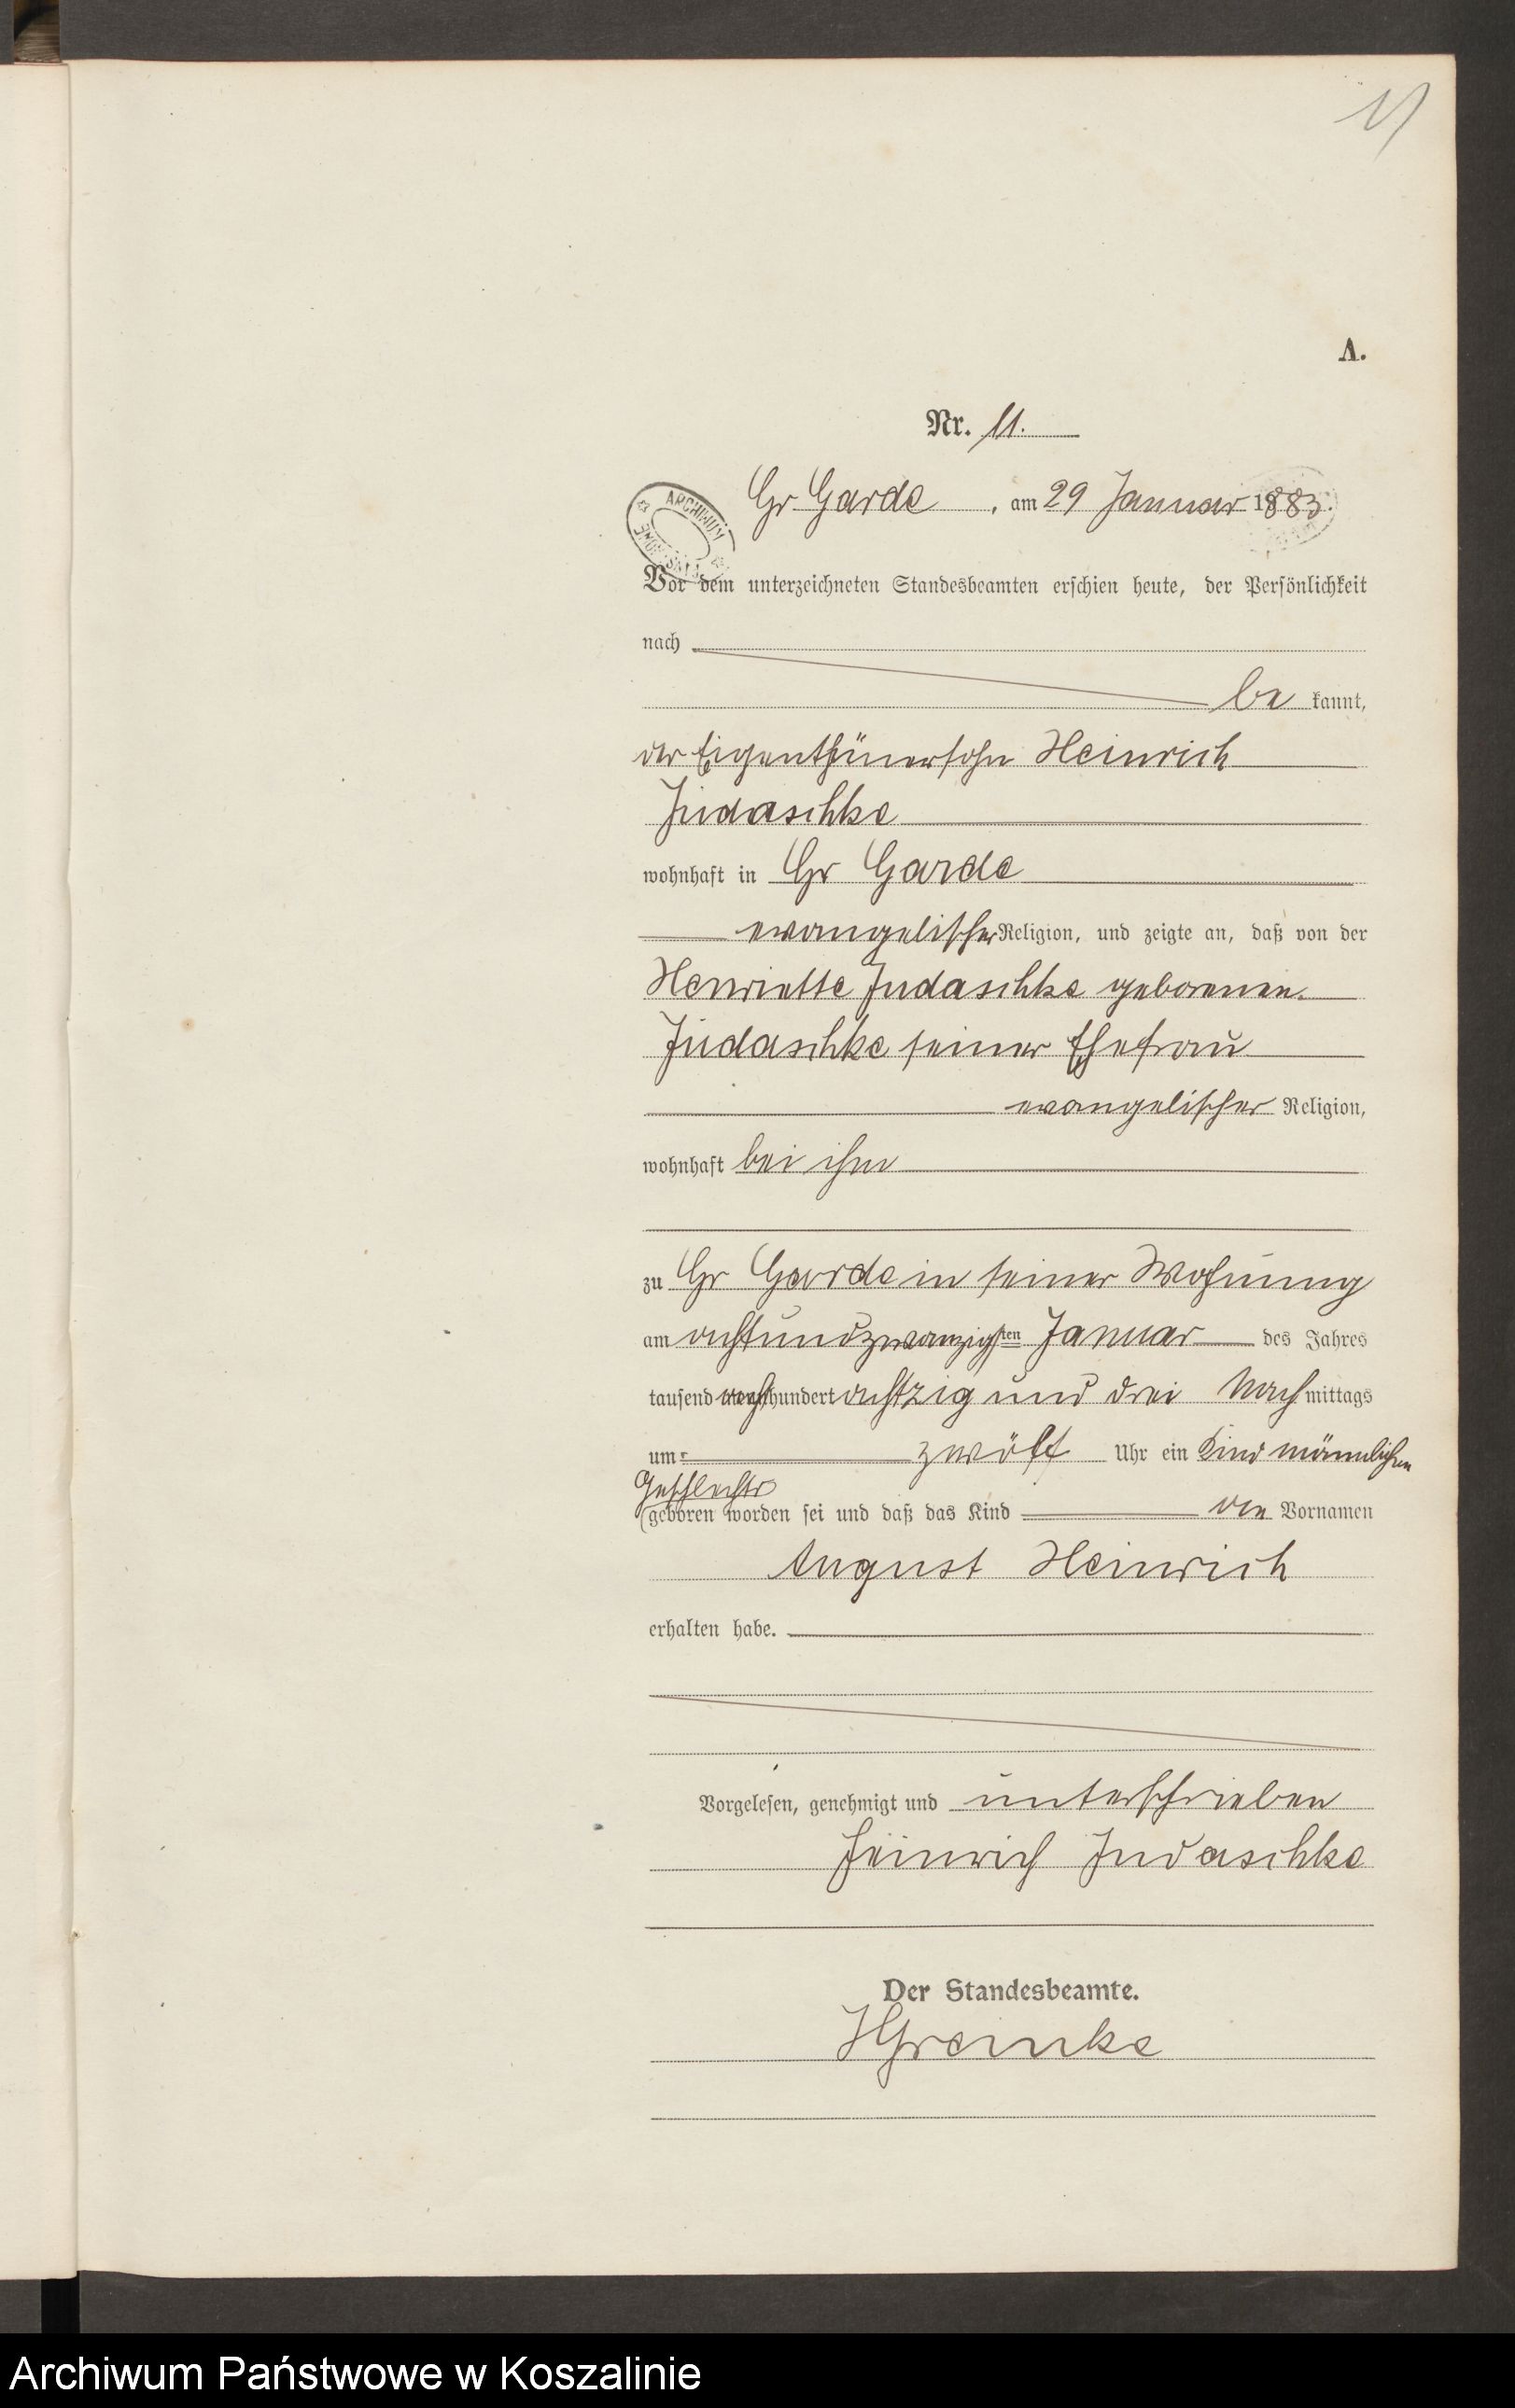 A.
Nr. 11.
Gr Garde, am 29 Januar 1883.
ARCHIWUM
Vor dem unterzeichneten Standesbeamten erschien heute, der Persönlichkeit
nach
be kannt,
der Eigenthümersohn Heinrich
Judaschke
wohnhaft in Gr Garde
evangelischer Religion, und zeigte an, daß von der
Henriette Judaschke geborenen
Judaschke seiner Ehefrau
evangelischer Religion,
wohnhaft bei ihm
zu Gr Garde in seiner Wohnung
am achtundzwanzigsten Januar des Jahres
tausend acht hundert achtzig und drei Nach mittags
um zwölf Uhr ein Kind männlichen
Geschlechts
geboren worden sei und daß das Kind die Vornamen
August Heinrich
erhalten habe.
Vorgelesen, genehmigt und unterschrieben
Heinrich Judaschke
Der Standesbeamte.
HGreinke
Archiwum Państwowe w Koszalinie